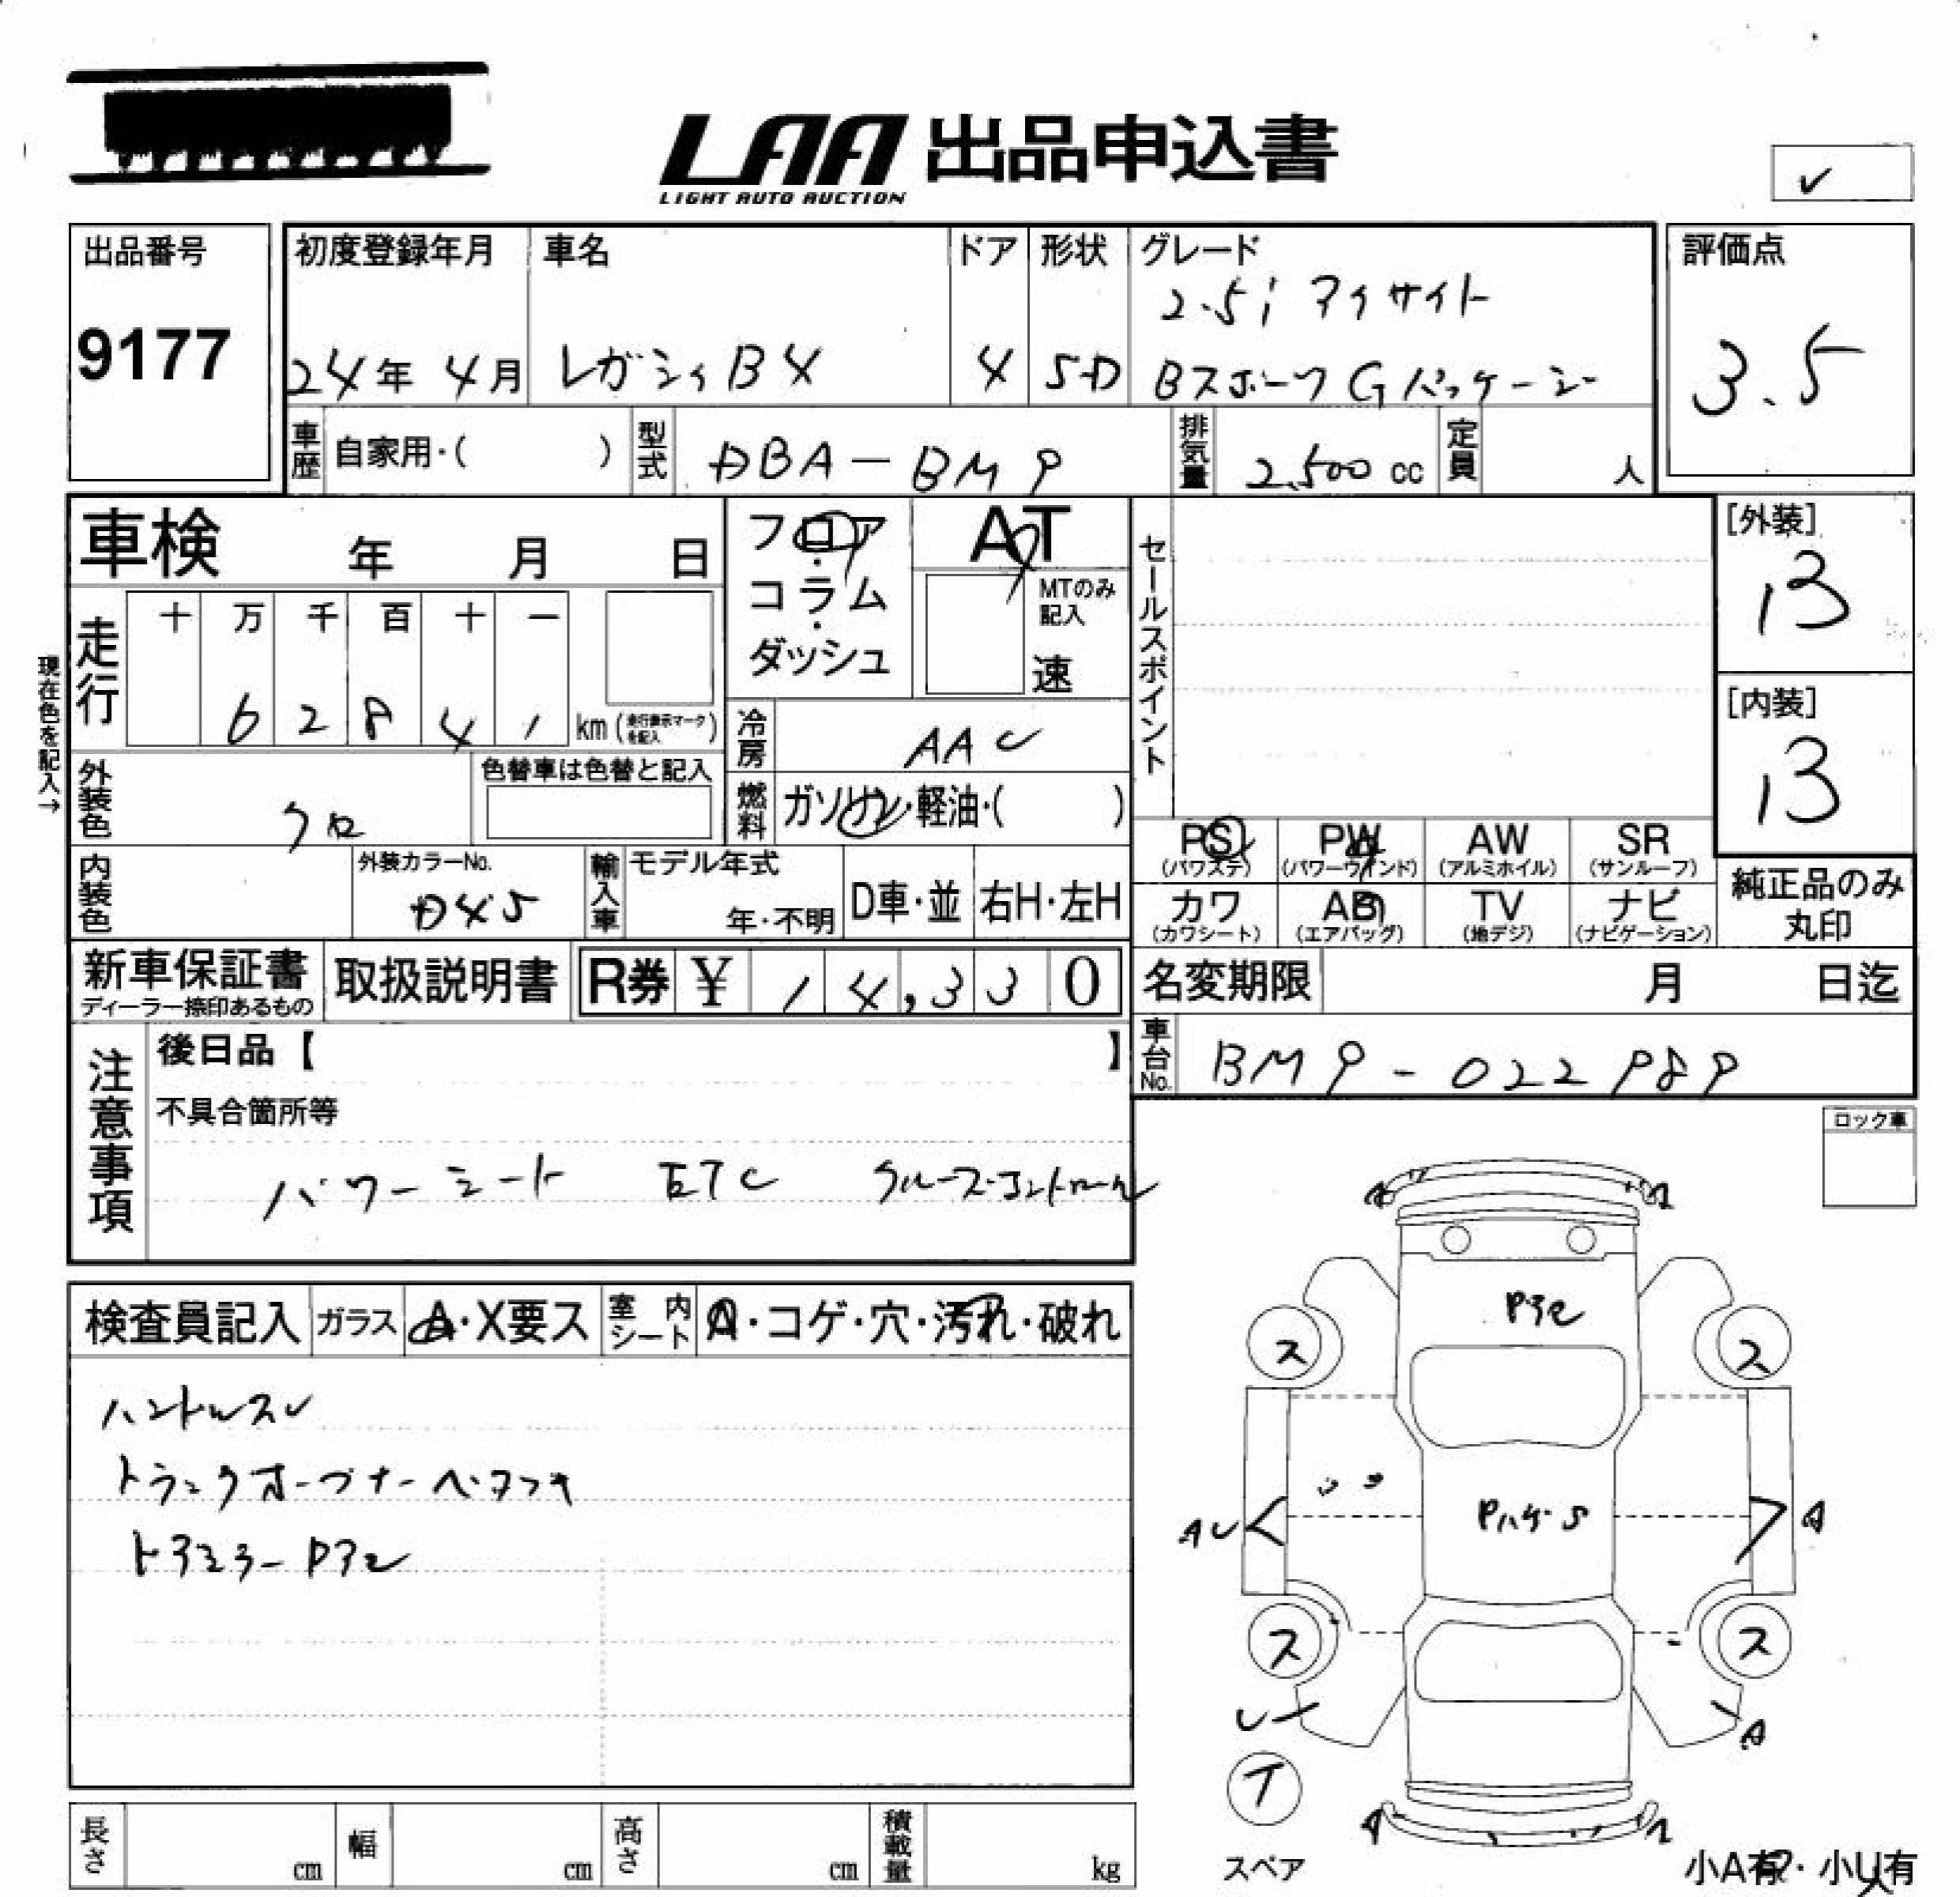 LAA 出品申込書
LIGHT AUTO AUCTION
✓
出品番号
9177
初度登録年月
24年 4月
車名
レガシィB4
ドア
4
形状
S-D
グレード
2.5i アイサイト
Bスポーツ Gパッケージ
評価点
3.5
車歴 自家用・( )
型式 DBA-BM9
排気量 2.500 cc
定員 人
車検 年 月 日
フロア・
コラム・
ダッシュ
AT
MTのみ
記入
速
セールスポイント
[外装]
B
[内装]
B
現在色を記入→
走行
十 万 千 百 十 一
6 2 8 4 1 km (走行表示マークを記入)
冷房 AAC
外装色 クロ
色替車は色替と記入
燃料 ガソリン・軽油・( )
PS (パワステ)
PW (パワーウインド)
AW (アルミホイル)
SR (サンルーフ)
内装色
外装カラーNo.
D4S
輸入車
モデル年式
年・不明
D車・並
右H・左H
カワ (カワシート)
AB (エアバッグ)
TV (地デジ)
ナビ (ナビゲーション)
純正品のみ
丸印
新車保証書
ディーラー捺印あるもの
取扱説明書
R券 ¥ 14,330
名変期限 月 日迄
車台No. BM9-022989
注意事項
後日品【 】
不具合箇所等
パワーシート ETC クルーズコントロール
ロック車
検査員記入
ガラス A・X要ス
室内シート A・コゲ・穴・汚れ・破れ
ハンドルスレ
トランクオープナー
ドアミラーPアセ
A
Pアセ
ス ス
A
A
ス ス
A
T
スペア
A
小A有・小U有
長さ cm
幅 cm
高さ cm
積載量 kg